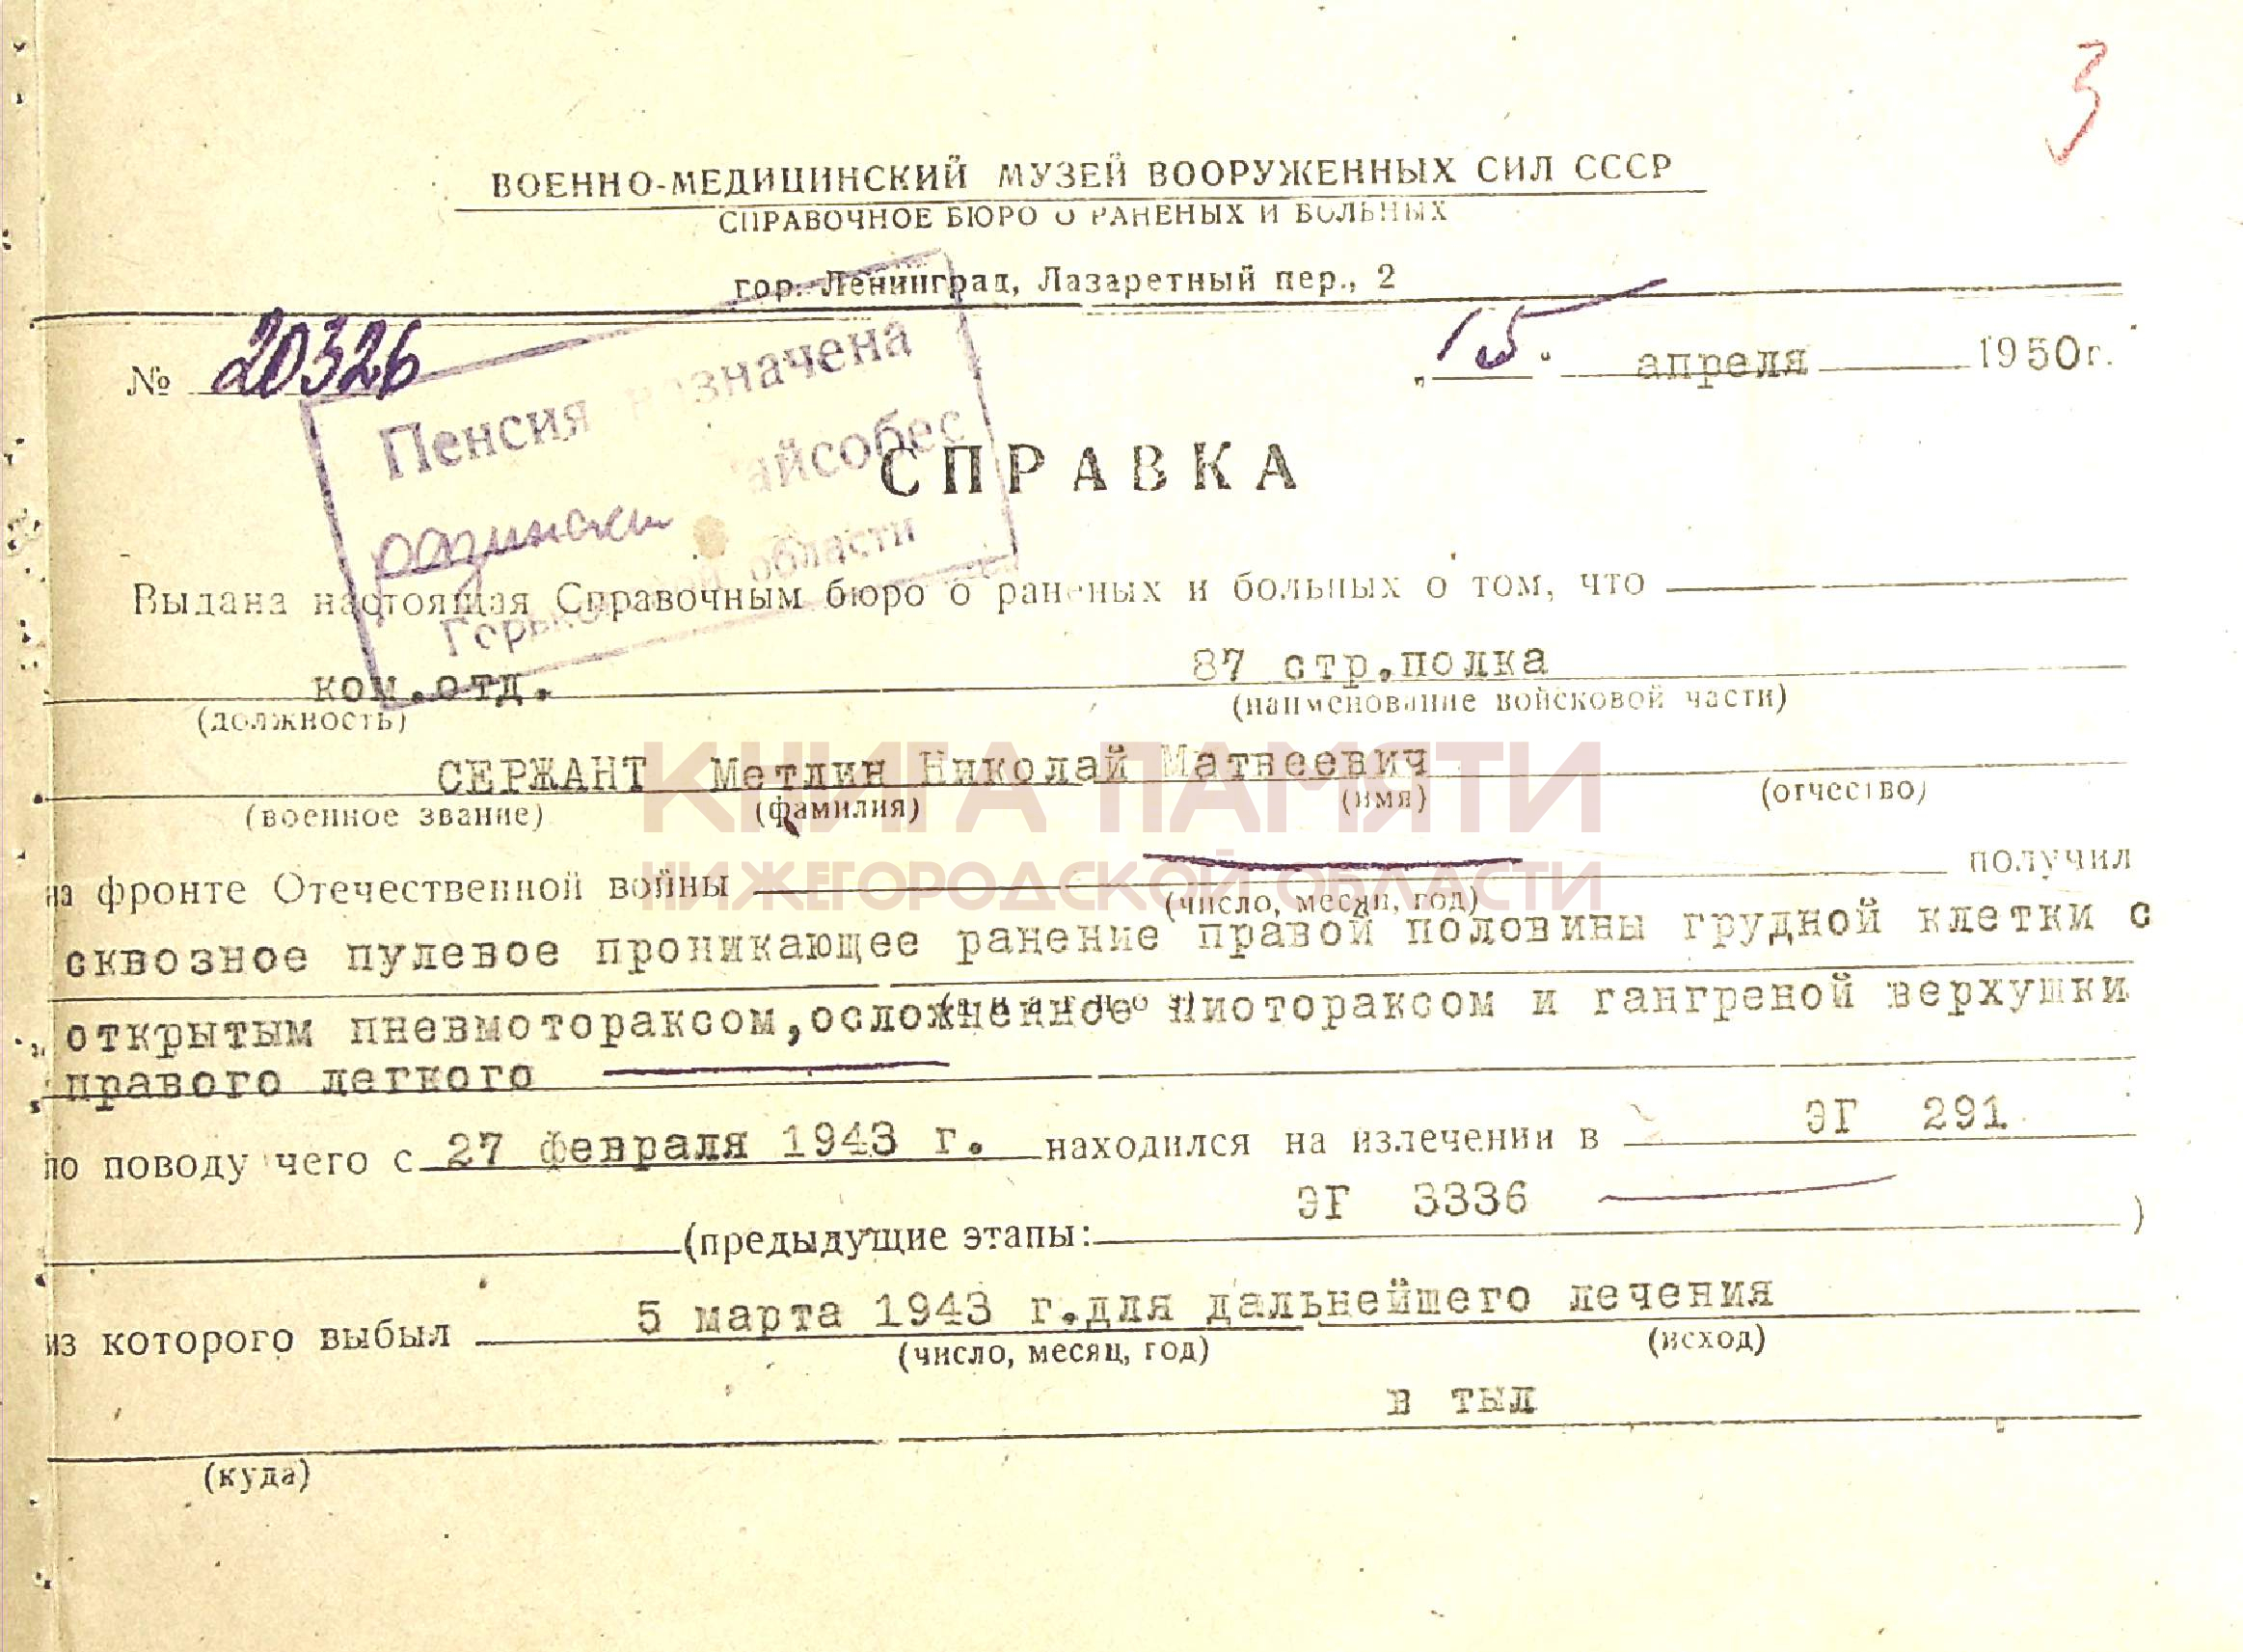 3
ВОЕННО-МЕДИЦИНСКИЙ МУЗЕЙ ВООРУЖЕННЫХ СИЛ СССР
СПРАВОЧНОЕ БЮРО О РАНЕНЫХ И БОЛЬНЫХ
гор. Ленинград, Лазаретный пер., 2
№ 20326
„ 15 . апреля 1950г.
Пенсия назначена
айсобес
области
СПРАВКА
Выдана настоящая Справочным бюро о раненых и больных о том, что
ком.отд. 87 стр.полка
(должность) (наименование войсковой части)
СЕРЖАНТ Метлин Николай Матвеевич
(военное звание) (фамилия) (имя) (отчество)
КНИГА ПАМЯТИ
НИЖЕГОРОДСКОЙ ОБЛАСТИ
на фронте Отечественной войны получил
(число, месяц, год)
сквозное пулевое проникающее ранение правой половины грудной клетки с
открытым пневмотораксом,осложненное пиотораксом и гангреной верхушки
правого легкого
по поводу чего с 27 февраля 1943 г. находился на излечении в ЭГ 291
(предыдущие этапы: ЭГ 3336 )
из которого выбыл 5 марта 1943 г.для дальнейшего лечения
(число, месяц, год) (исход)
в тыл
(куда)